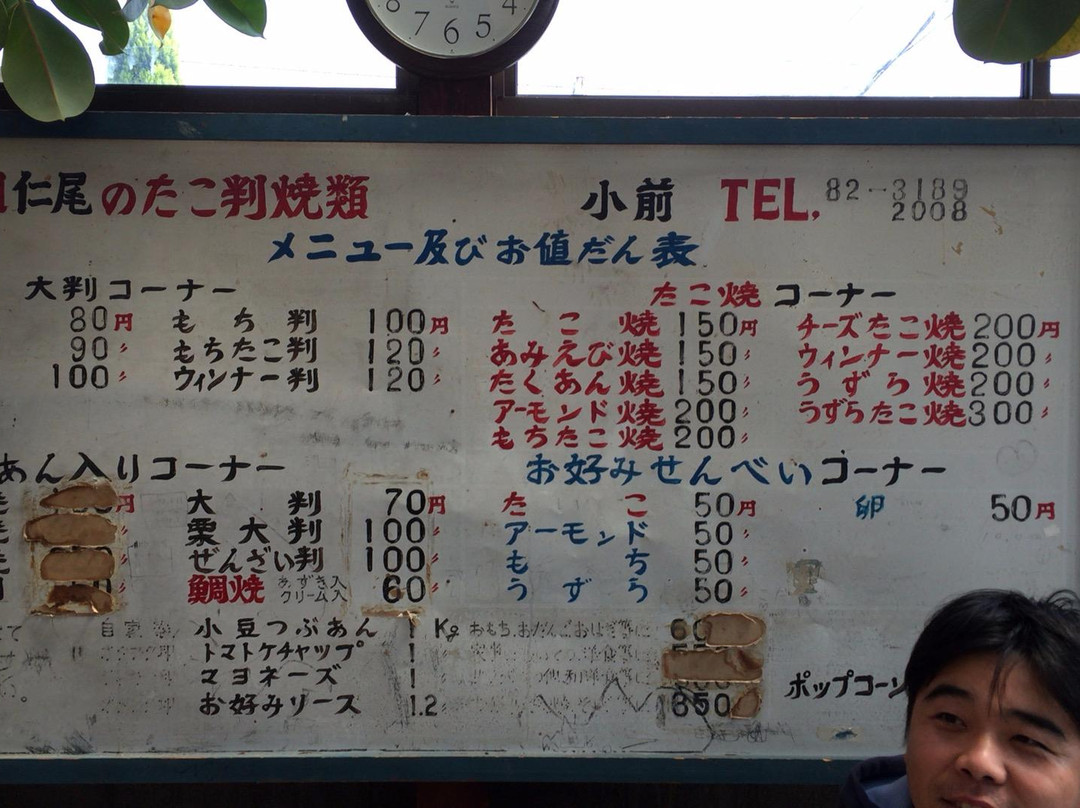 8 7 6 5 4
仁尾のたこ判焼類 小前 TEL. 82-3189
2008
メニュー及びお値だん表
大判コーナー
80円 もち判 100円
90〃 もちたこ判 120〃
100〃 ウィンナー判 120〃
たこ焼コーナー
たこ焼 150円 チーズたこ焼 200円
あみえび焼 150〃 ウィンナー焼 200〃
たくあん焼 150〃 うずら焼 200〃
アーモンド焼 200〃 うずらたこ焼 300〃
もちたこ焼 200〃
あん入りコーナー
円 大判 70円
栗大判 100〃
ぜんざい判 100〃
鯛焼 あずき入 クリーム入 60〃
お好みせんべいコーナー
たこ 50円 卵 50円
アーモンド 50〃
もち 50〃
うずら 50〃
小豆つぶあん 1Kg
トマトケチャップ 1
マヨネーズ 1
お好みソース 1.2
ポップコーン